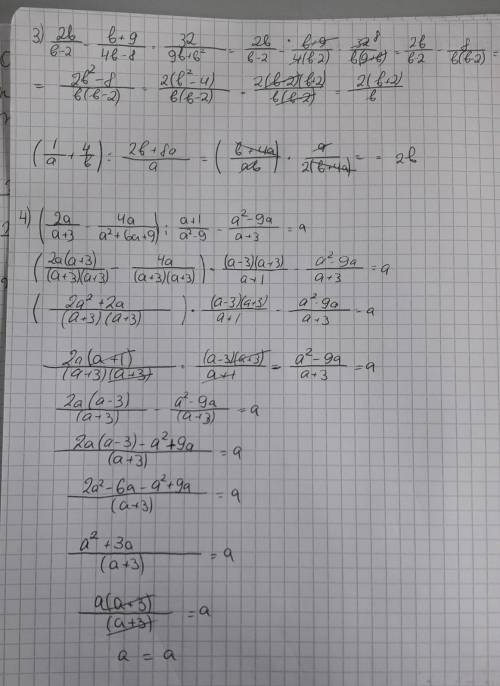 3) \frac{2b}{b-2} - \frac{b+9}{4b-8} · \frac{32}{9b+b²} = \frac{2b}{b-2} - \frac{b+9}{4(b-2)} · \frac{32^8}{b(9+b)} = \frac{2b}{b-2} - \frac{8}{b(b-2)} =
= \frac{2b²-8}{b(b-2)} = \frac{2(b²-4)}{b(b-2)} = \frac{2(b-2)(b+2)}{b(b-2)} = \frac{2(b+2)}{b}
(\frac{1}{a} + \frac{4}{b}) : \frac{2b+8a}{a} = (\frac{b+4a}{ab}) · \frac{a}{2(b+4a)} = = 2b
4) (\frac{2a}{a+3} - \frac{4a}{a²+6a+9}) : \frac{a+1}{a²-9} - \frac{a²-9a}{a+3} = a
(\frac{2a(a+3)}{(a+3)(a+3)} - \frac{4a}{(a+3)(a+3)}) · \frac{(a-3)(a+3)}{a+1} - \frac{a²-9a}{a+3} = a
(\frac{2a²+2a}{(a+3)(a+3)}) · \frac{(a-3)(a+3)}{a+1} - \frac{a²-9a}{a+3} = a
\frac{2a(a+1)}{(a+3)(a+3)} · \frac{(a-3)(a+3)}{a+1} = \frac{a²-9a}{a+3} = a
\frac{2a(a-3)}{(a+3)} - \frac{a²-9a}{(a+3)} = a
\frac{2a(a-3)-a²+9a}{(a+3)} = a
\frac{2a²-6a-a²+9a}{(a+3)} = a
\frac{a²+3a}{(a+3)} = a
\frac{a(a+3)}{(a+3)} = a
a = a